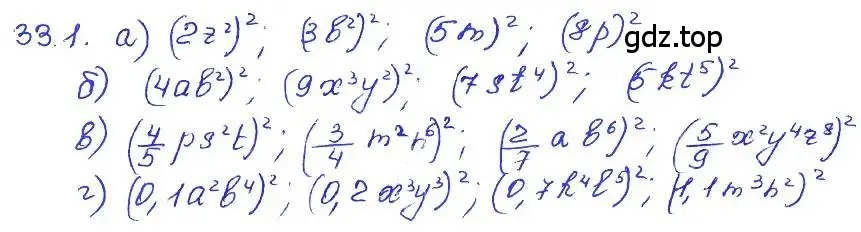 33.1. а) (2z²)²; (3b²)²; (5m)²; (8p)²
gdz.top
б) (4ab²)²; (9x³y²)²; (7st⁴)²; (5kt⁵)²
в) (4/5 ps²t)²; (3/4 m²n⁶)²; (2/7 ab⁶)²; (5/9 x²y⁴z⁸)²
г) (0,1a²b⁴)²; (0,2x³y³)²; (0,7k⁴l⁵)²; (1,1m³n²)²